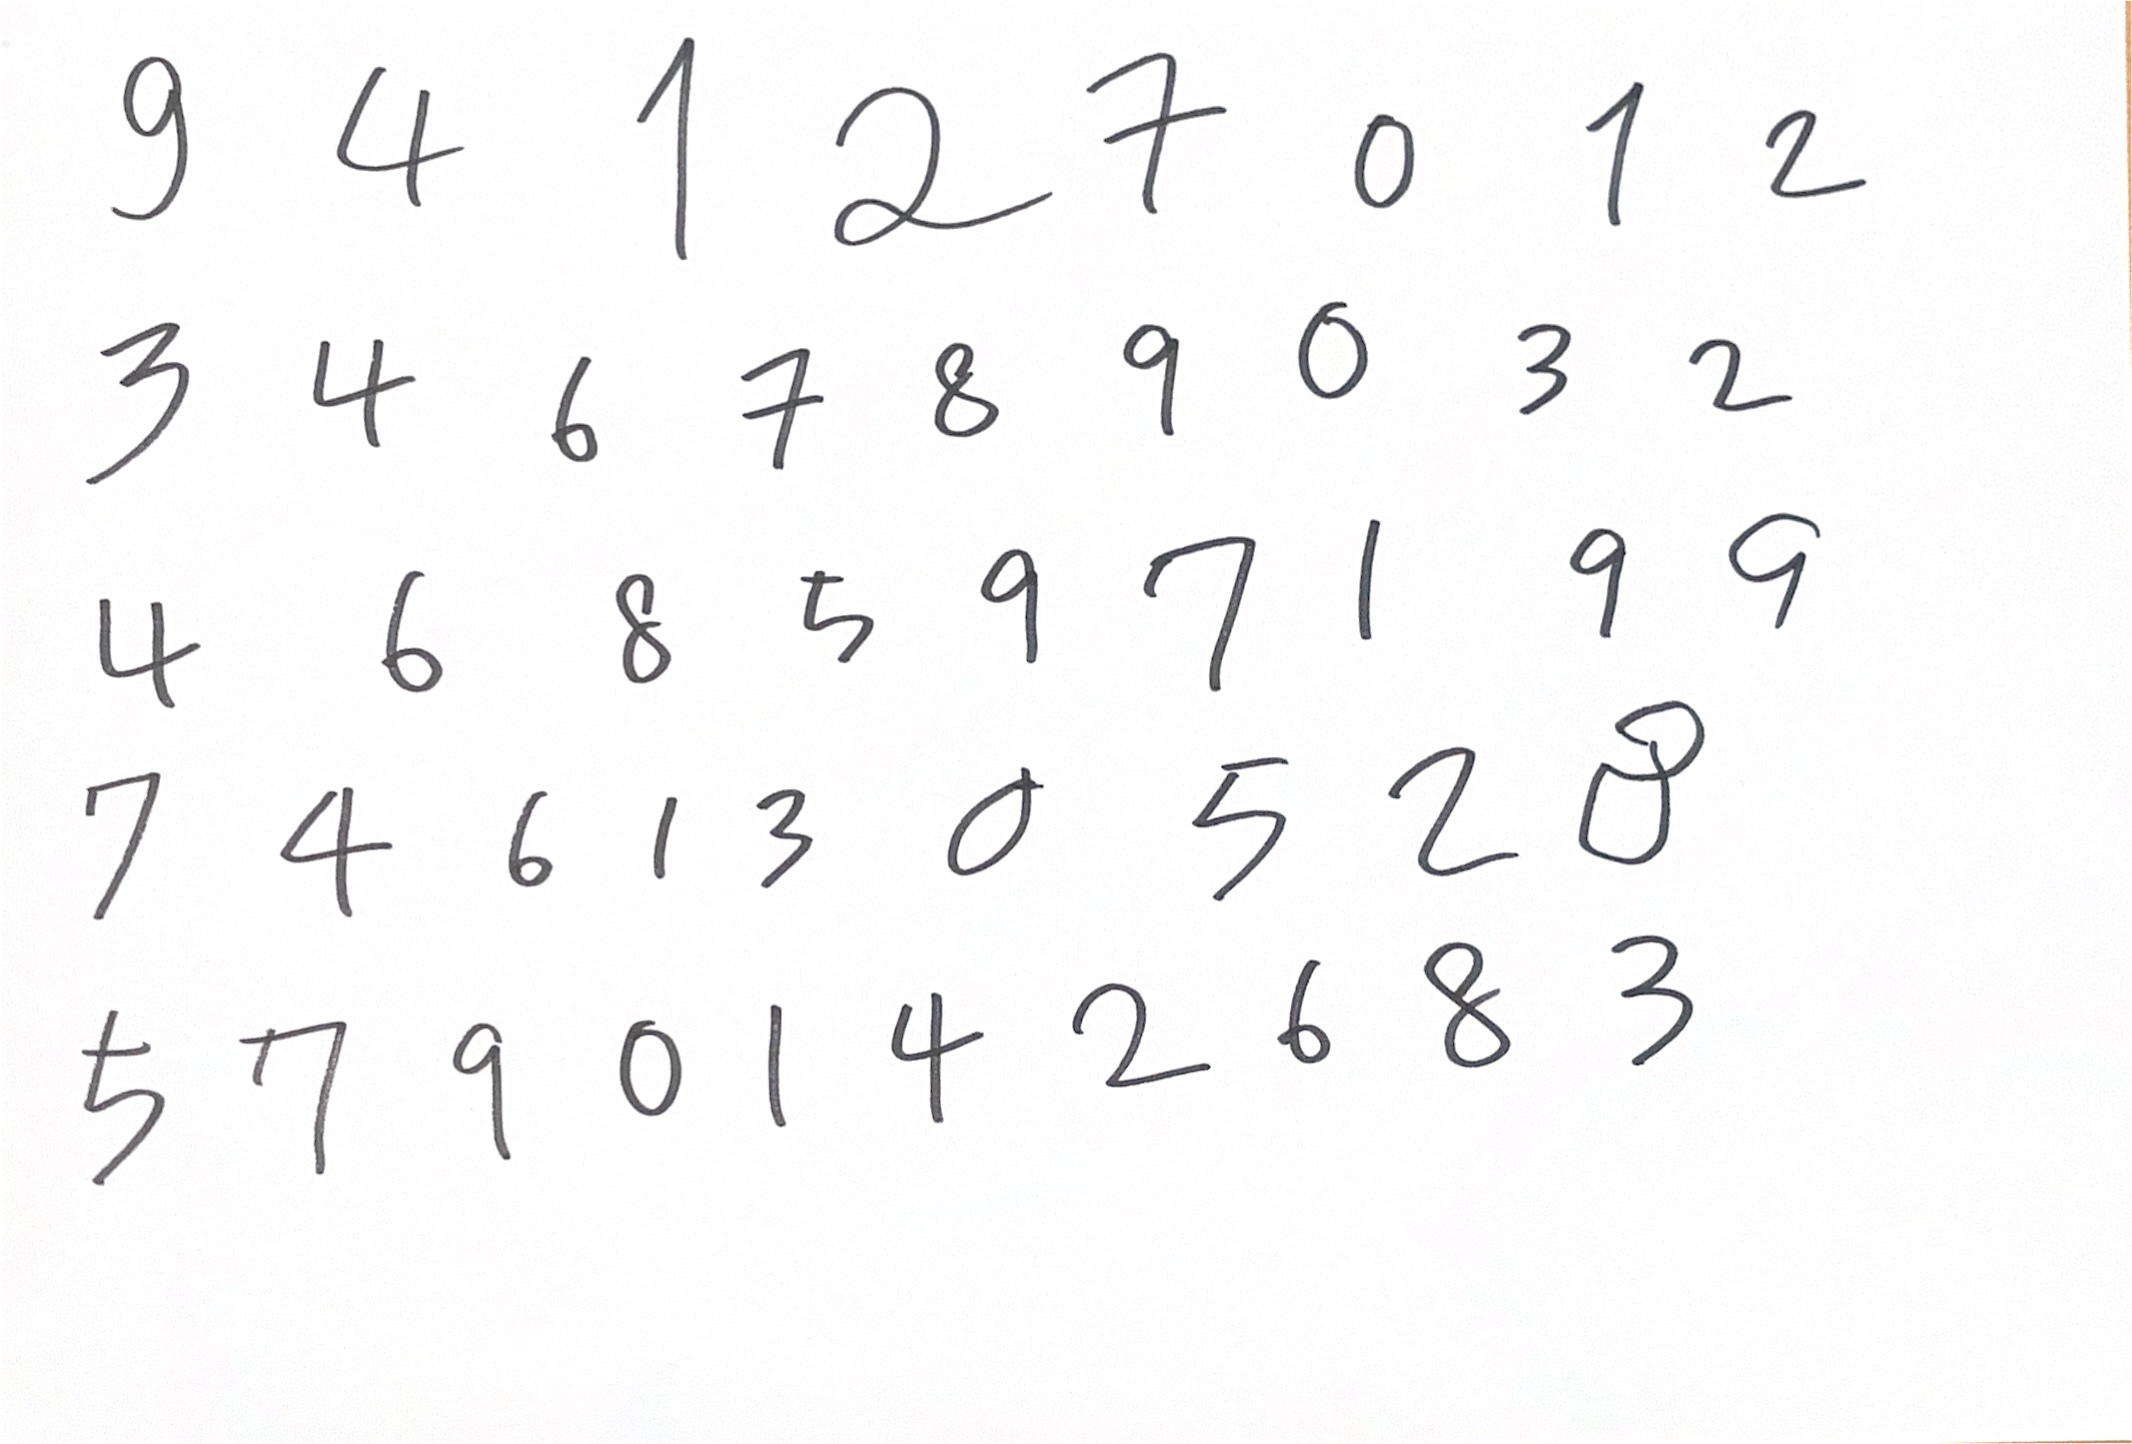 9 4 1 2 7 0 1 2
3 4 6 7 8 9 0 3 2
4 6 8 5 9 7 1 9 9
7 4 6 1 3 0 5 2 8
5 7 9 0 1 4 2 6 8 3